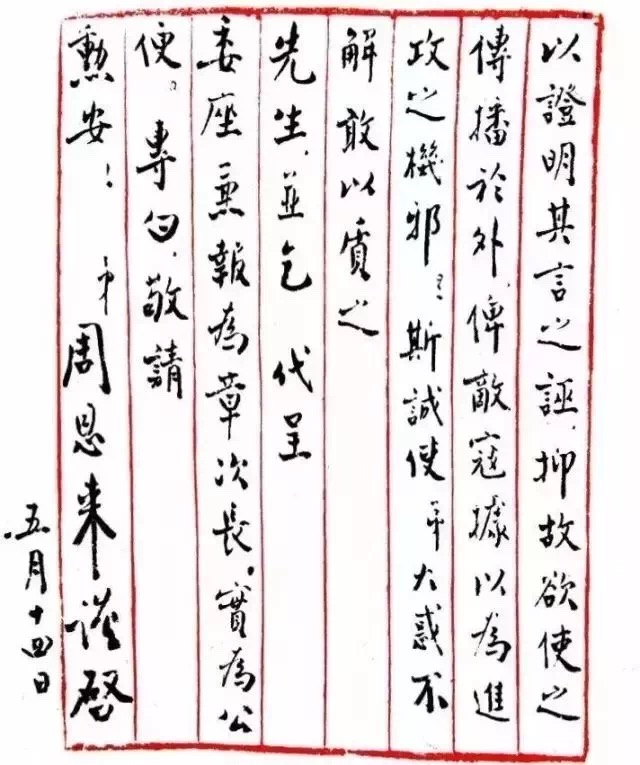 以證明其言之誣，抑故欲使之
傳播於外，俾敵寇據以為進
攻之機邪？斯誠使弟大惑不
解，敢以質之
先生，並乞代呈
委座，並報為章次長，實為公
便。專函，敬請
勳安！ 弟 周恩来 謹啓
五月十四日